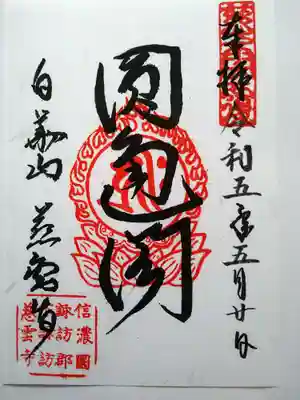 奉拝 令和五年五月廿日
圓通閣
白華山 慈雲寺
信濃國
諏訪郡
慈雲寺